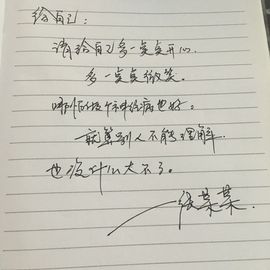 给自己:
请给自己多一点点开心.
多一点点微笑.
哪怕做个神经病也好.
就算别人不能理解.
也没什么大不了.
张某某.